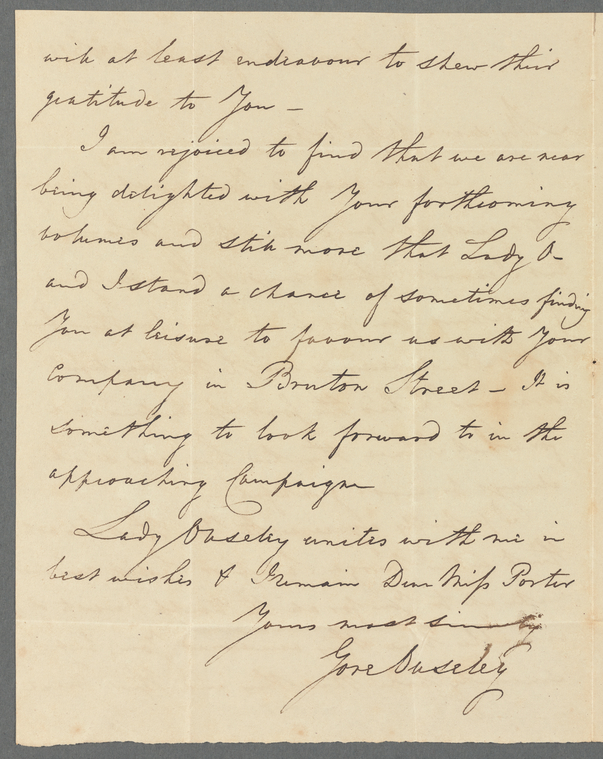 will at least endeavour to shew their
gratitude to You –
I am rejoiced to find that we are near
being delighted with Your forthcoming
volumes and still more that Lady O–
and I stand a chance of sometimes finding
You at leisure to favour us with Your
Company in Bruton Street – It is
something to look forward to in the
approaching Campaign
Lady Ouseley unites with me in
best wishes & I remain Dear Miss Porter
Yours most sincerely
Gore Ouseley